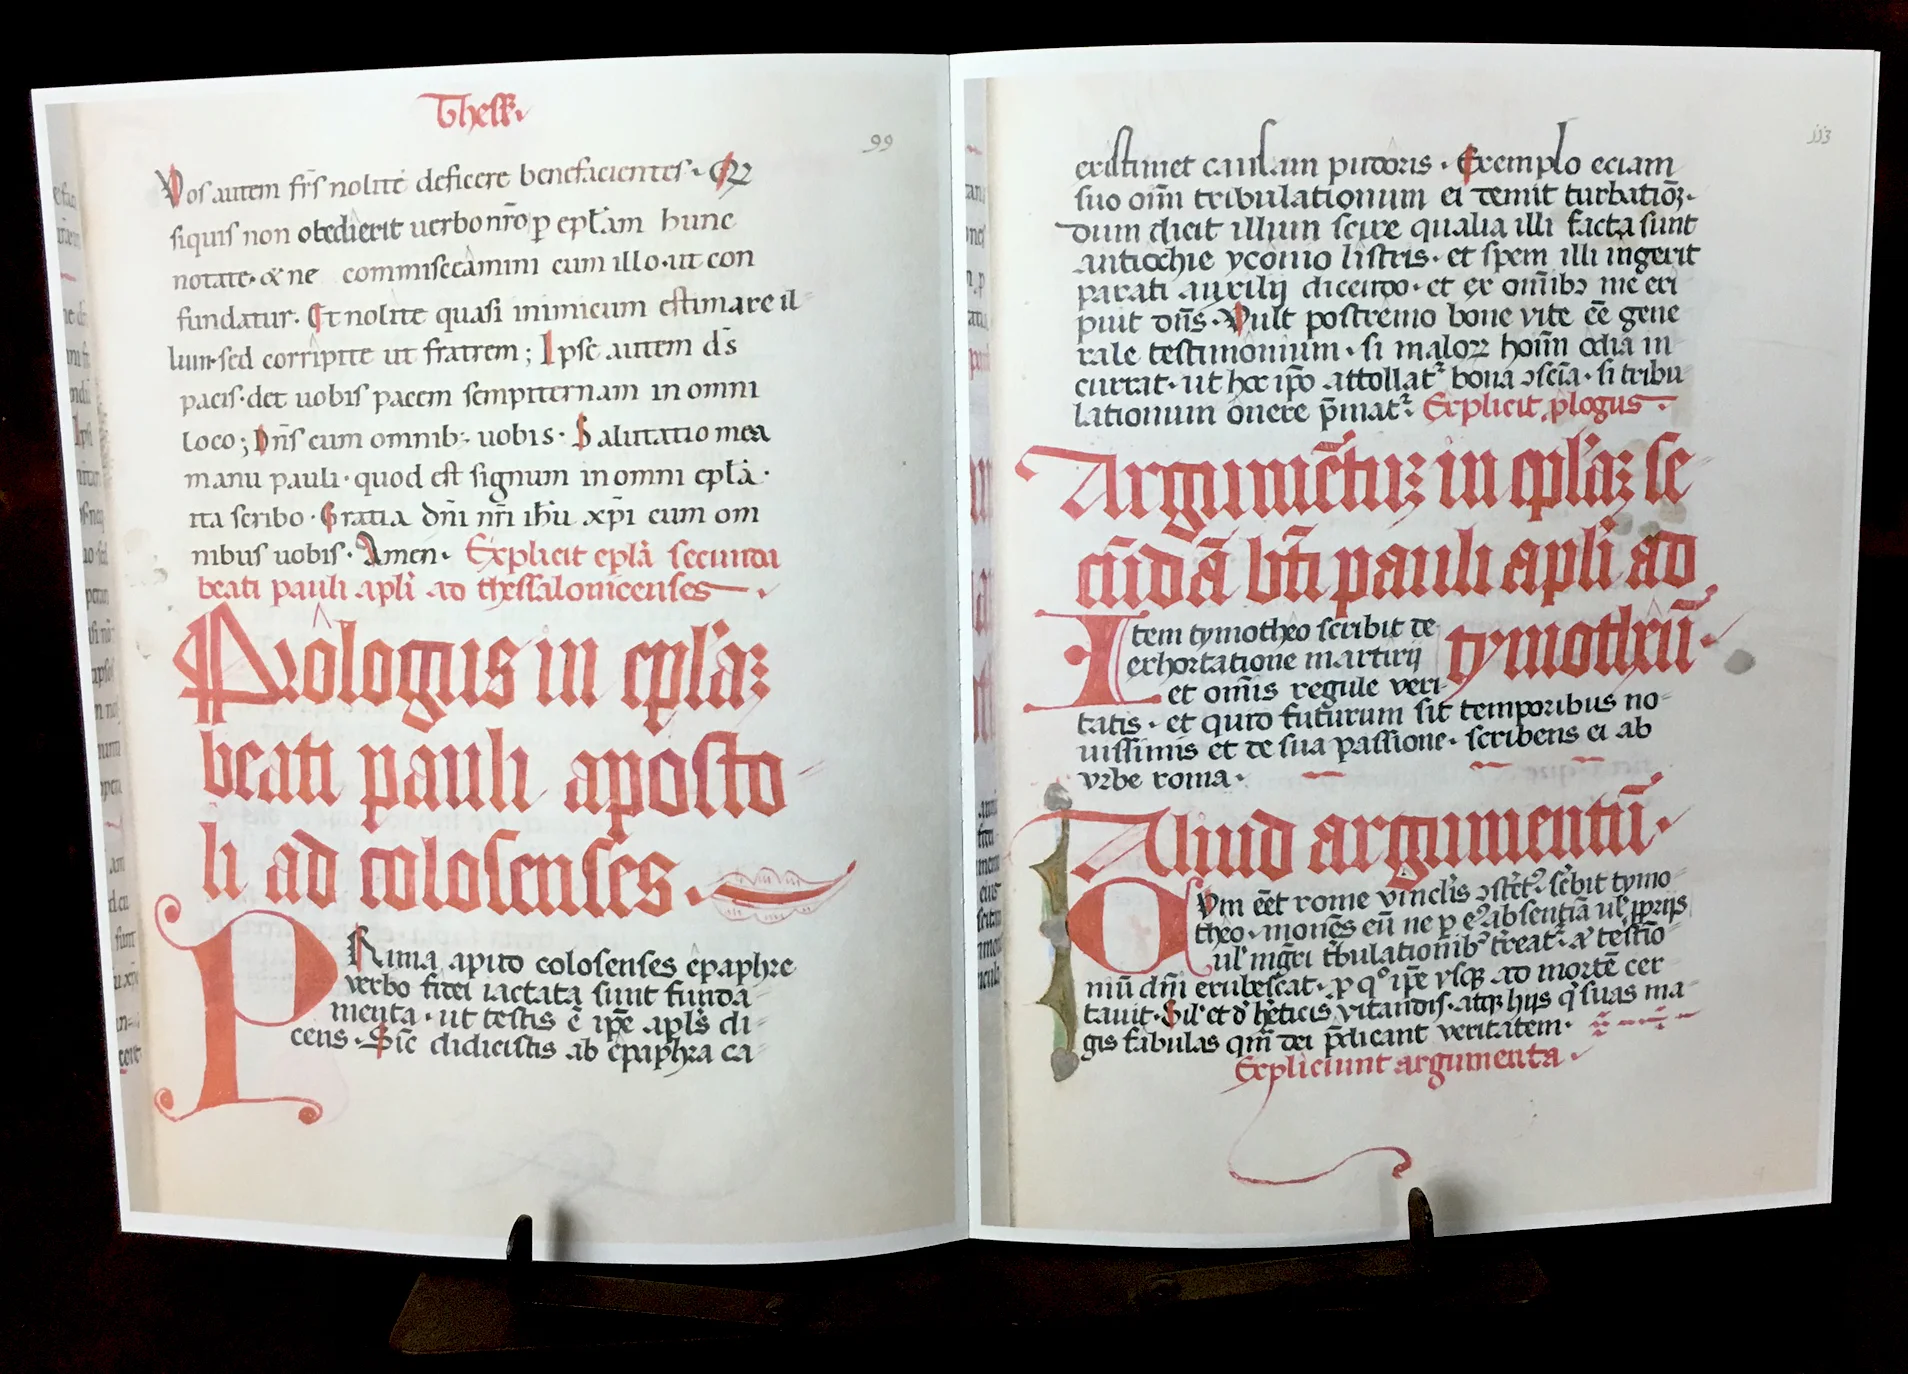 Thess.
99
Vos autem frs̄ nolite deficere benefacientes. Qꝫ
siquis non obedierit uerbo nr̄o p̱ epłam hunc
notate. & ne commisceamini cum illo. ut con
fundatur. Et nolite quasi inimicum estimare il
lum. sed corripite ut fratrem; Ipse autem ds̄
pacis. det uobis pacem sempiternam in omni
loco; Dn̄s cum omnib; uobis. Salutatio mea
manu pauli. quod est signum in omni epła.
ita scribo. Gratia dn̄i nr̄i ih̄u xp̄i cum om
nibus uobis. Amen. Explicit epła secunda
beati pauli apłi ad thessalonicenses.
Prologus in epłaꝫ
beati pauli aposto
li ad colosenses.
PRima capito colosenses epaphre
verbo fidei iactata sunt funda
menta. ut testis ē ip̄e apłs di
cens. Sic̄ didicistis ab epaphra ca
113
existimet causam pudoris. Exemplo eciam
suo om̄ tribulationum ei demit turbatioꝫ.
dum dicit illum scire qualia illi facta sunt
antiochie yconio listris. et spem illi ingerit
parati auxilij dicendo. et ex omibꝫ me eri
puit dn̄s. Vult postremo bone vite eē gene
rale testimonium. si maloꝝ hoīm odia in
currat. ut hoc ip̄o attollat᷑ bona ↄscīa. si tribu
lationum onere p̄mat᷑. Explicit plogus.
Argumētuꝫ in epłaꝫ se
cūdā bt̄i pauli apłi ad
tymothēū.
Item tymotheo scribit de
exhortatione martirij
et om̄is regule veri
tatis. et quid futurum sit temporibus no
uissimis et de sua passione. scribens ei ab
vrbe roma.
Aliud argumentū.
QVm eēt rome vinclis ↄstct᷑. sc̄bit tymo
theo. monēs eū ne p̱ eꝰ absentiā ul̓ pprijs
ul̓ mgr̄i tbulationibꝰ treat᷑. & testīo
niū dn̄i erubescat. p̱ qͦ ip̄e vsqꝫ ad mortē cer
tauit. Sil̓ et đ heticis vitandis. atqꝫ hijs q̓ suas ma
gis fabulas qm̄ dei p̄dicant veritatem.
Expliciunt argumenta.